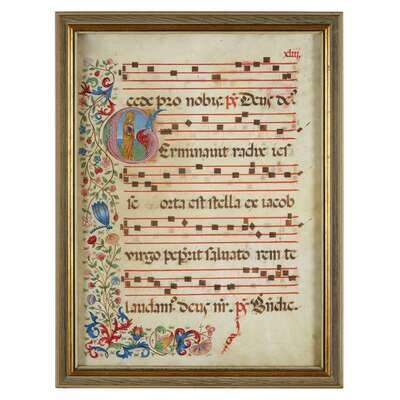 xliij
cede pro nobis ps Deus deꝰ
Germinavit radix ies
se orta est stella ex iacob
virgo peperit salvato rem te
laudamꝰ deus nr̄. ps Bn̄dic.